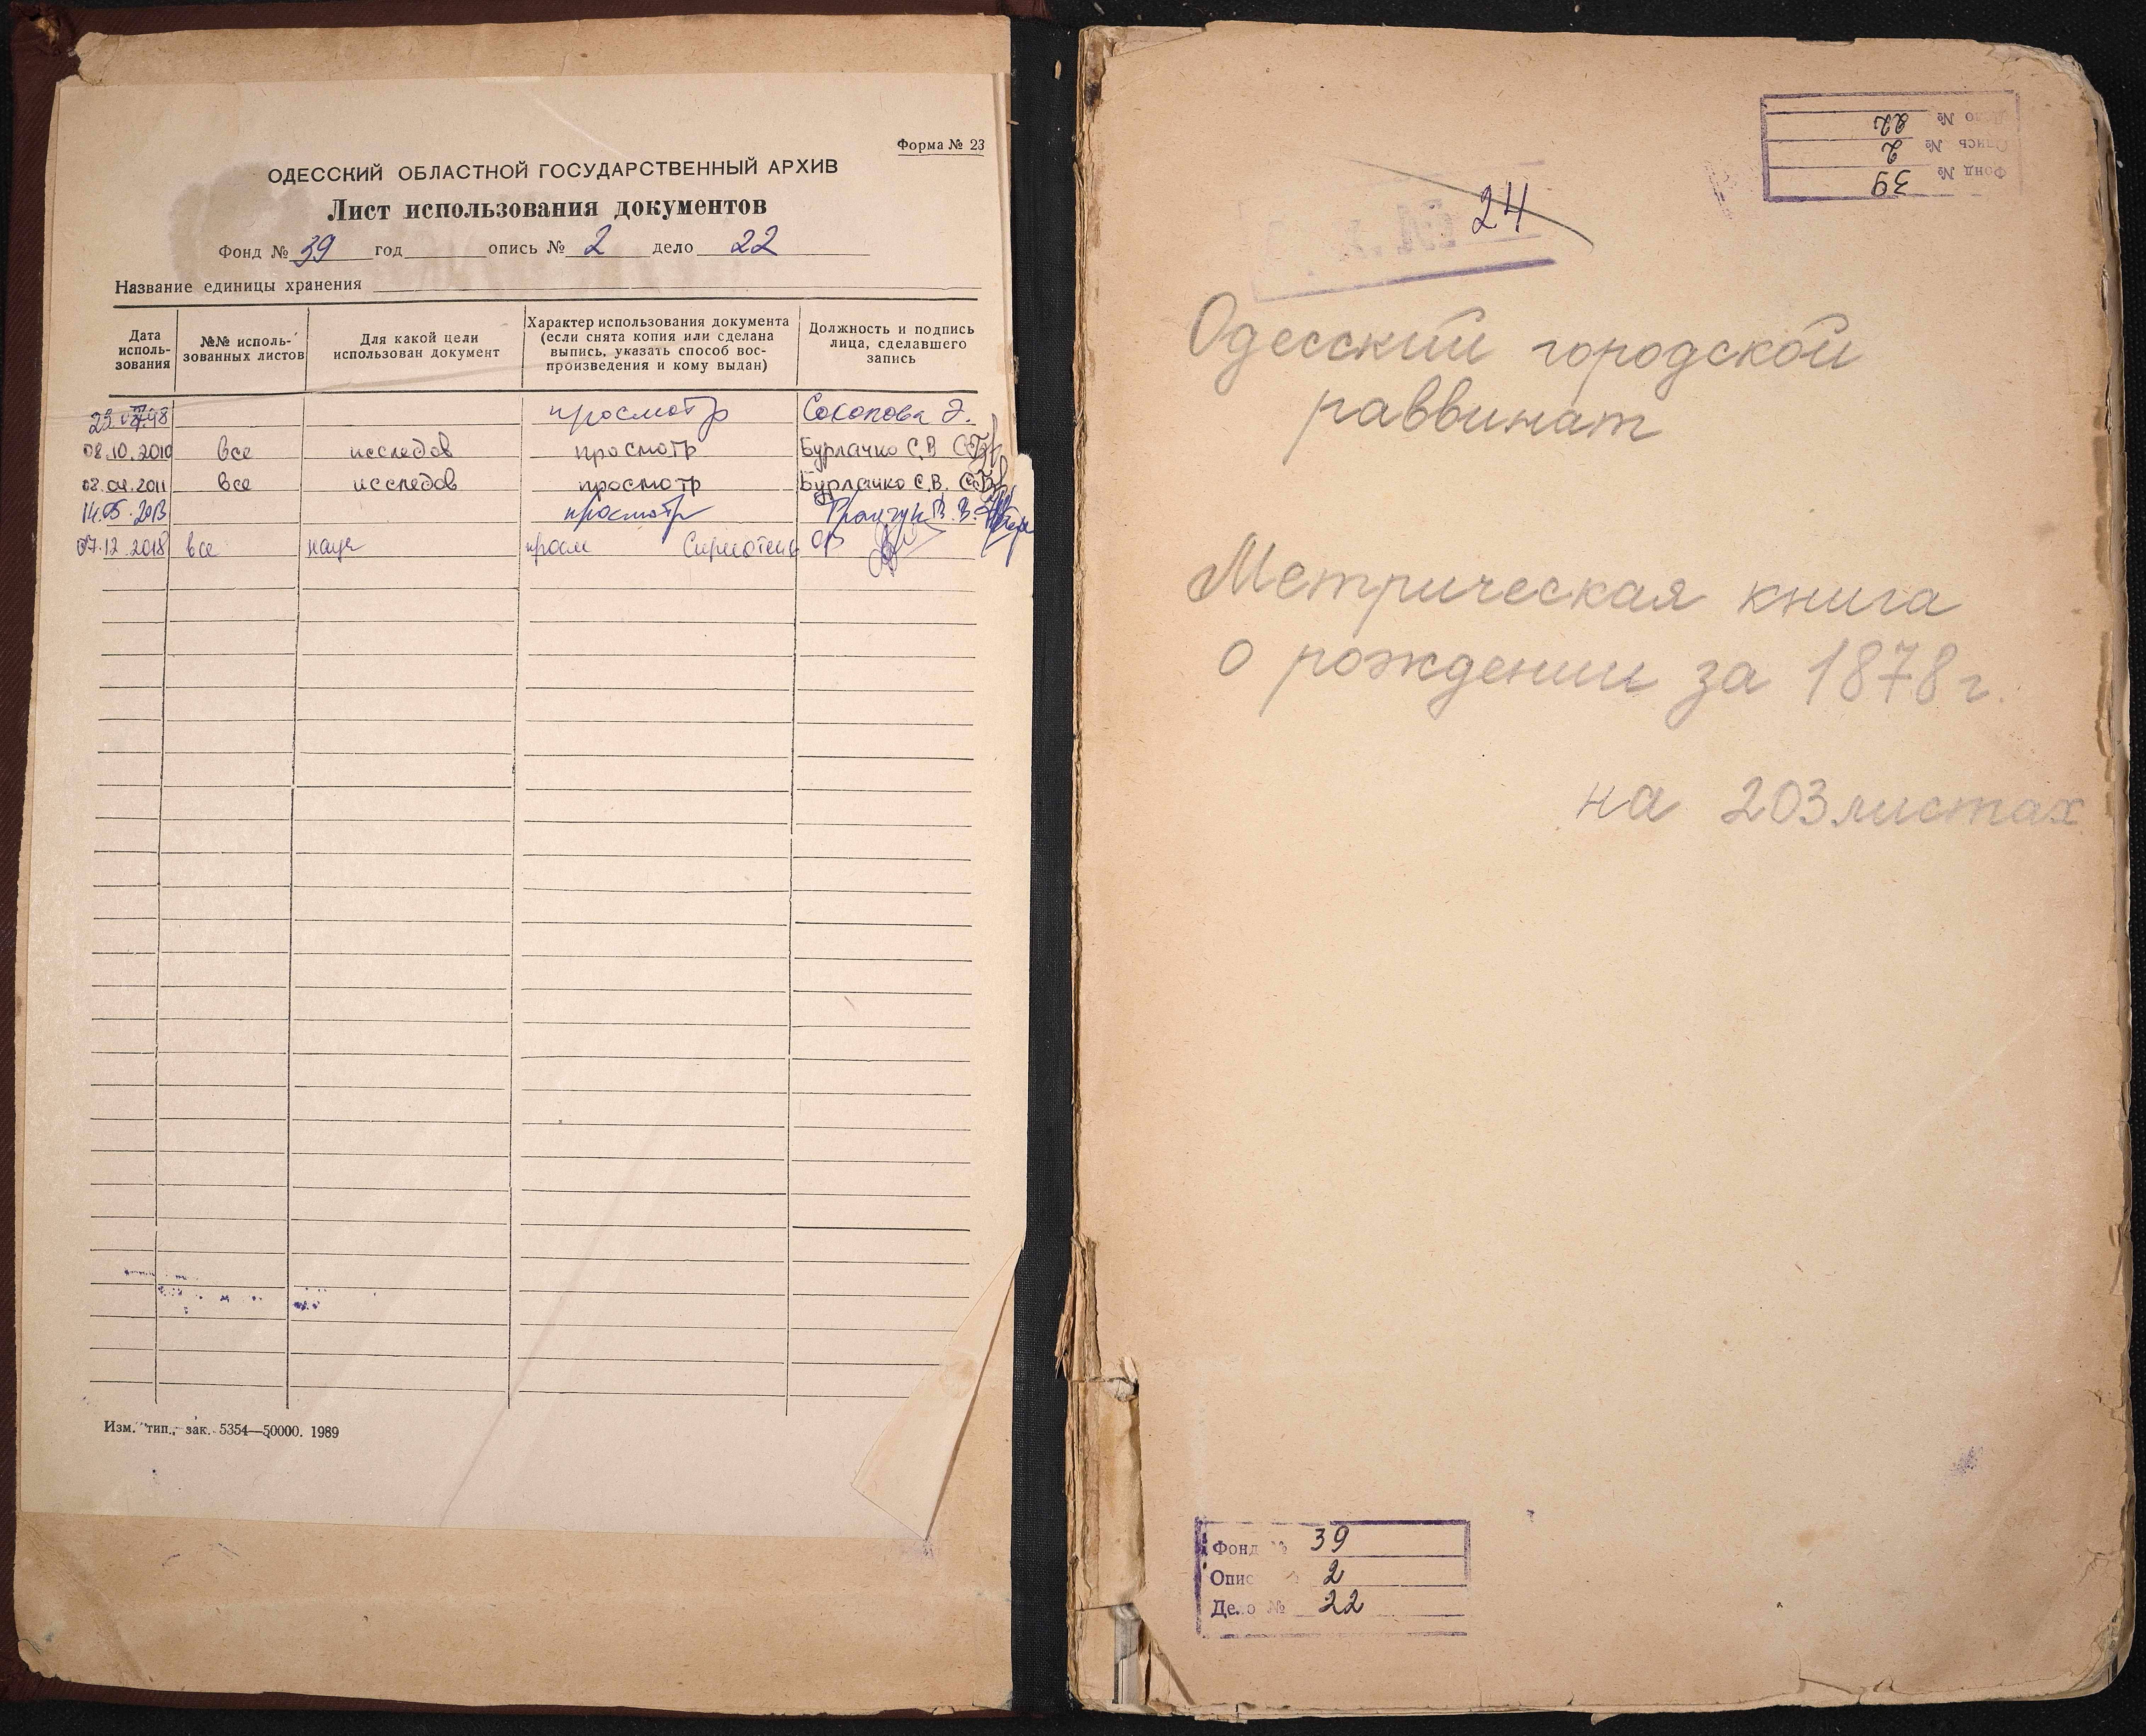 Форма № 23
ОДЕССКИЙ ОБЛАСТНОЙ ГОСУДАРСТВЕННЫЙ АРХИВ
Лист использования документов
Фонд № 39 год опись № 2 дело 22
Название единицы хранения
Дата исполь-зования
№№ исполь-зованных листов
Для какой цели использован документ
Характер использования документа (если снята копия или сделана выпись, указать способ вос-произведения и кому выдан)
Должность и подпись лица, сделавшего запись
просмотр
08.10.2010 все исследов просмотр Бурлачко С.В
08.04.2011 все исследов просмотр Бурлачко С.В.
14.05.2013 просмотр
07.12.2018 все науч просм
Изм. тип., зак. 5354—50000. 1989
Фонд № 39
Опись № 2
Дело № 22
24
Одесский городской
раввинат
Метрическая книга
о рождении за 1878 г.
на 203 листах
Фонд № 39
Опис 2
Дело № 22